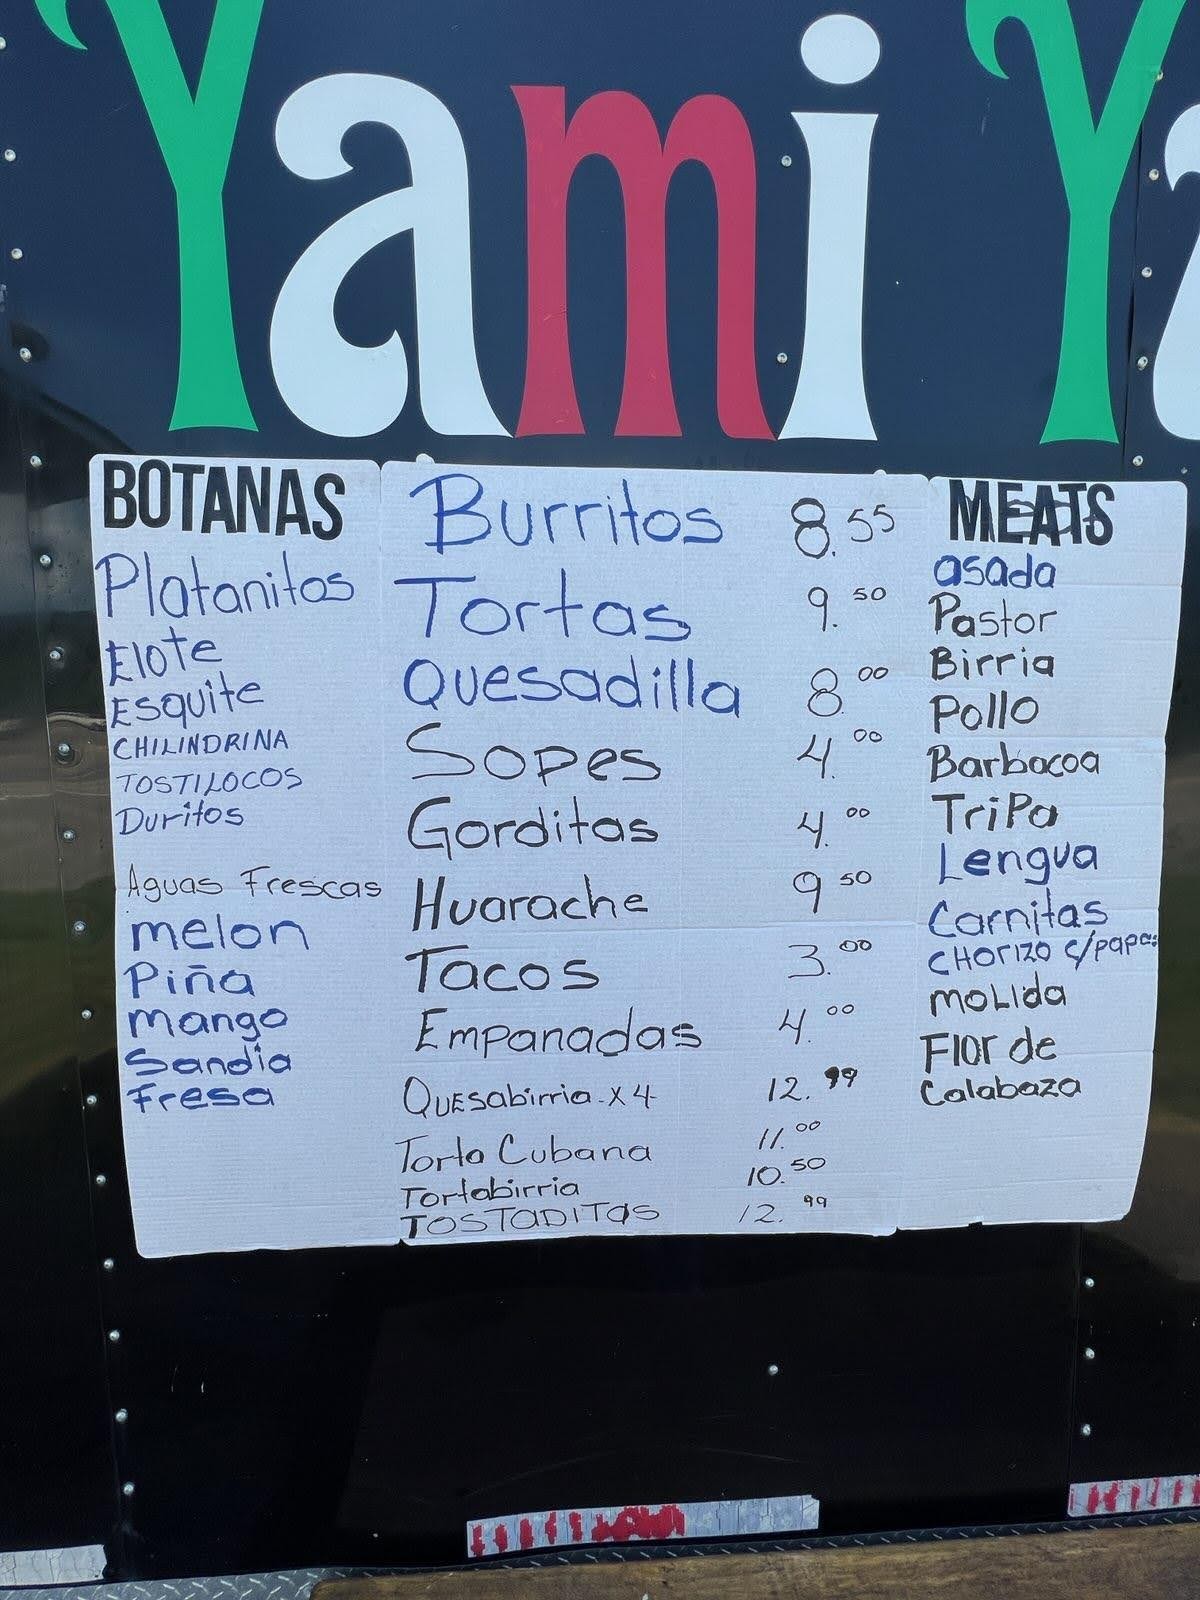 Yami Ya
BOTANAS
Platanitos
Elote
Esquite
CHILINDRINA
TOSTILOCOS
Duritos
Aguas Frescas
melon
Piña
mango
Sandia
Fresa
Burritos 8.55
Tortas 9.50
Quesadilla 8.00
Sopes 4.00
Gorditas 4.00
Huarache 9 50
Tacos 3.00
Empanadas 4.00
Quesabirria x 4 12.99
Torta Cubana 11.00
Tortabirria 10.50
TOSTADITAS 12.99
MEATS
asada
Pastor
Birria
Pollo
Barbacoa
TriPa
Lengua
Carnitas
CHORIZO c/papas
moLida
Flor de
Calabaza